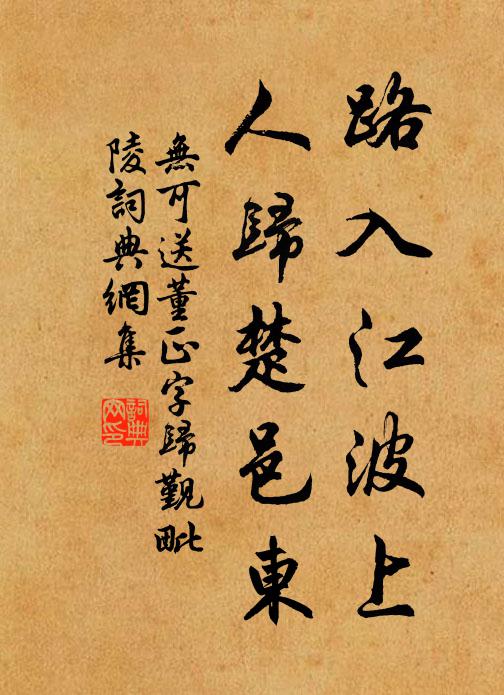 路入江波上
人歸楚邑東
無可送董正字歸覲毗
陵詞典網集
詞典網印